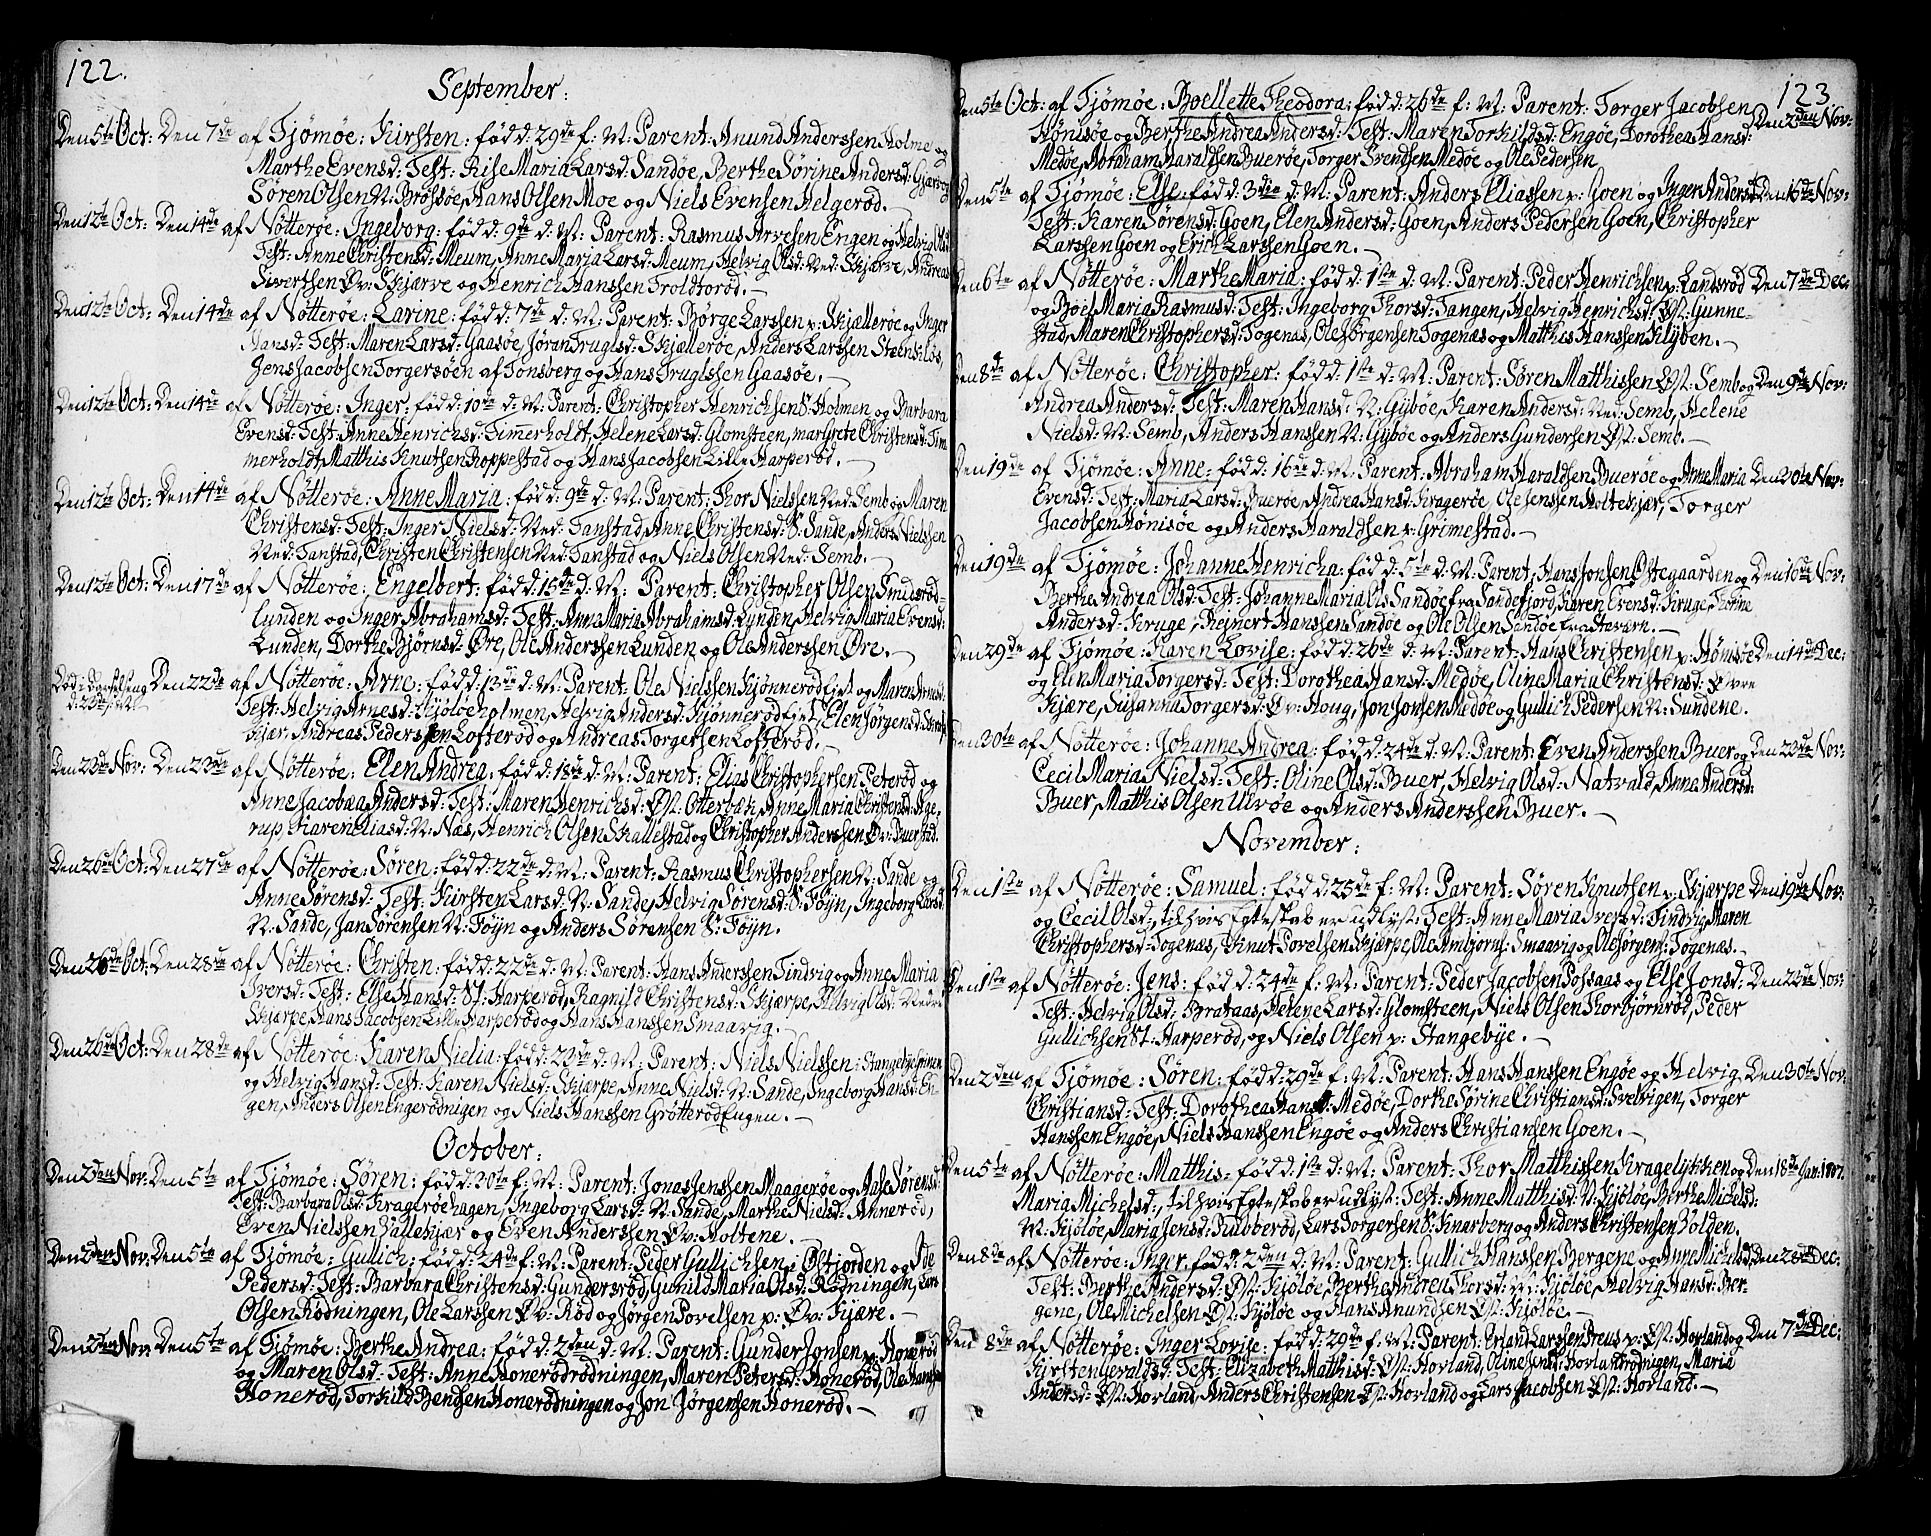 122.
September:
Den 5te Oct: Den 7de af Tjømøe: Kirsten: fødd: 29de f: M: Parent: Anund Anderssen Holme og
Marthe Evensd: Test: Rise Maria Larsd: Sandøe, Berthe Sørine Andersd:
Søren Olsen N: Brøtsøe, Hans Olsen Moe og Niels Evensen Helgerød.
Den 12te Oct: Den 14de af Nøtterøe: Ingeborg: fødd: 9de d: M: Parent: Rasmus Arvesen Engen og Helvig Olsd:
Test: Anne Christensd: Meum, Anne Maria Larsd: Meum, Helvig Olsd: Ned: Skjerve, Andreas
Sivertsen Øv: Skjærve og Henrich Hanssen Troldtorød.
Den 12te Oct: Den 14de af Nøtterøe: Larine: fødd: 7de d: M: Parent: Børge Larssen p: Skjællerøe og Inger
Hansd: Test: Maren Larsd: Gaasøe, Jøran Truglsd: Skjællerøe, Anders Larssen Steenkløs,
Jens Jacobsen Torgersøen af Tønsberg og Hans Truglssen Gaasøe.
Den 12te Oct: Den 14de af Nøtterøe: Inger: fødd: 10de d: M: Parent: Christopher Henrichsen S: Holmen og Barbara
Evensd: Test: Anne Henrichsd: Timerholdt, Helene Larsd: Glomsteen, Margrete Christensd: Tim
merholdt, Matthis Knutsen Roppestad og Hans Jacobsen Lille Harperød.
Den 12te Oct: Den 14de af Nøtterøe: Anne Maria: fødd: 9de d: M: Parent: Thor Nielssen Ned: Semb og Maren
Christensd: Test: Inger Nielsd: Ned: Tanstad, Anne Christensd: S: Sande, Anders Nielssen
Ned: Tanstad, Christen Christensen Ned: Tanstad og Niels Olsen Ned: Semb.
Den 12te Oct: Den 17de af Nøtterøe: Engelbert: fødd: 15de d: M: Parent: Christopher Olsen Smidsrød-
lunden og Inger Abrahamsd: Test: Anna Maria Abrahamsd: Lunden, Helvig Maria Evensd:
Lunden, Dorthe Bjørnsd: Øre, Ole Anderssen Lunden og Ole Anderssen Øre.
Død i Barselseng d: 23de Den 22de af Nøtterøe: Arne: fødd: 13de d: M: Parent: Ole Nielssen Kjønnerød Ejet og Maren Arnesd:
Test: Helvig Arnesd: Kjøløeholmen, Helvig Andersd: Kjønnerød Ejet, Elen Jørgensd:
kjær: Andreas Pederssen Lofterød og Andreas Torgersen Lofterød.
Den 23de Nov: Den 23de af Nøtterøe: Elen Andrea: fødd: 18de d: M: Parent: Elias Christophersen Peterød og
Anne Jacobæa Andersd: Test: Maren Henrichsd: Øst: Otterbæk, Anne Maria Christensd: Age-
rup, Karen Eliasd: N: Næs, Henrich Olsen Skallestad og Christopher Anderssen Øv: Buerstad.
Den 26de Oct: Den 27de af Nøtterøe: Søren: fødd: 22de d: M: Parent: Rasmus Christophersen N: Sande og
Anne Sørensd: Test: Kirsten Larsd: N: Sande, Helvig Sørensd: S: Føyn, Ingeborg Larsd:
N: Sande, Jan Sørensen N: Føyn og Anders Sørensen S: Føyn.
Den 26de Oct: Den 28de af Nøtterøe: Christen: fødd: 22de d: M: Parent: Hans Anderssen Tindvig og Anne Maria
Iversd: Test: Else Hansd: St: Harperød, Ragnild Christensd: Skjærpe, Helvig Olsd: Nedre
Skjærpe, Hans Jacobsen Lille Harperød og Hans Hanssen Smaavig.
Den 26de Oct: Den 28de af Nøtterøe: Karen Nielia: fødd: 23de d: M: Parent: Niels Nielssen: Stangebyespinen
og Helvig Hansd: Test: Karen Nielsd: Skjærpe, Anne Nielsd: N: Sande, Ingeborg Hansd: En-
gen, Anders Olsen Engerødnigen og Niels Hanssen Grotterød Engen.
October:
Den 2den Nov: Den 5te af Tjømøe: Søren: fødd: 20de f: M: Parent: Jonas Jenssen Maagerøe og Aase Sørensd:
Test: Barbara Olsd: Kragerøehagen, Ingeborg Larsd: N: Sande, Marthe Nielsd: Annerød,
Even Nielssen Vallekjær og Even Anderssen Øv: Holtene.
Den 2den Nov: Den 5te af Tjømøe: Gullich: fødd: 24de f: M: Parent: Peder Gullichsen p: Østjorden og Ide
Pedersd: Test: Barbara Christensd: Gundersrød, Gunild Maria Olsd: Rødningen, Lars
Olsen Rødningen, Ole Larssen Øv: Rød og Jørgen Povelsen p: Øv: Kjære.
Den 2den Nov: Den 5te af Tjømøe: Berthe Andrea: fødd: 2den d: M: Parent: Gunder Jonsen p: Honerød
og Maren Olsd: Test: Anne Honerødrødningen, Maren Petersd: Honerød, Ole Hanssen
Honerød, Torkild Bendsen Honerødningen og Jon Jørgensen Honerød.
123
Den 5te Oct: af Tjømøe: Boellette Theodora: fødd: 26de f: M: Parent: Torger Jacobsen Den 2den Nov:
Hønisøe og Berthe Andrea Andersd: Test: Maren Torkildsd: Engøe, Dorothea Hansd:
Medøe, Abraham Haraldsen Buerøe, Torger Svendsen Medøe og Ole Pedersen
Den 5te af Tjømøe: Else: fødd: 3die d: M: Parent: Anders Eliassen p: Goen og Inger Andersd: Den 16de Nov:
Test: Karen Sørensd: Goen, Elen Andersd: Goen, Anders Pedersen Goen, Christopher
Larssen Goen og Erich Larssen Goen.
Den 6te af Nøtterøe: Marthe Maria: fødd: 1ste d: M: Parent: Peder Henrichsen p: Landsrød Den 7de Dec:
og Boel Maria Rasmusd: Test: Ingeborg Thorsd: Tangen, Helvig Henrichsd: Øst: Gunne-
stad, Maren Christophersd: Togenæs, Ole Jørgensen Togenæs og Matthis Hanssen Klyben.
Den 8de af Nøtterøe: Christopher: fødd: 1ste d: M: Parent: Søren Matthissen Øst: Semb og Den 9de Nov:
Andrea Andersd: Test: Maren Hansd: N: Gybøe, Karen Andersd: Ned: Semb, Helene
Nielsd: N: Semb, Anders Hanssen N: Gybøe og Anders Gundersen Øst: Semb.
Den 19de af Tjømøe: Anne: fødd: 16de d: M: Parent: Abraham Haraldsen Buerøe og Anne Maria Den 20de Nov:
Evensd: Test: Maria Larsd: Buerøe, Andrea Hansd: Kragerøe, Ole Jenssen Holtekjær, Torger
Jacobsen Hønisøe og Anders Haraldsen p: Grimestad.
Den 19de af Tjømøe: Johanne Henricha: fødd: 5te d: M: Parent: Hans Jonsen Østegaarden og Den 16de Nov:
Berthe Andrea Olsd: Test: Johanne Maria Olsd: Sandøe fra Sandefjord, Karen Evensd: Kruge, Thrine
Andersd: Kruge, Reinert Hanssen Sandøe og Ole Olsen Sandøe fra Stavarn.
Den 29de af Tjømøe: Karen Lovise: fødd: 26de d: M: Parent: Hans Christensen p: Hønisøe Den 14de Dec:
og Elen Maria Torgersd: Test: Dorothea Hansd: Medøe, Oline Maria Christensd: Øvre
Kjære, Susanna Torgersd: Øv: Houg, Jon Jonsen Medøe og Gullich Pedersen N: Sundene.
Den 30te af Nøtterøe: Johanne Andrea: fødd: 24de d: M: Parent: Even Anderssen Buer og Den 23de Nov:
Cecil Maria Nielsd: Test: Oline Olsd: Buer, Helvig Olsd: Natvald, Anne Andersd:
Buer, Matthis Olsen Ulvøe og Anders Anderssen Buer.
November:
Den 1ste af Nøtterøe: Samuel: fødd: 25de f: M: Parent: Søren Knutsen p: Skjærpe Den 19de Nov:
og Cecil Olsd:, til hvis Egteskab er udlyst: Test: Anne Maria Iversd: Tindvig, Maren
Christophersd: Togenæs, Knut Povelsen Skjærpe, Ole Ambjørns: Smaavig og Ole Jørgens: Togenæs.
Den 1ste af Nøtterøe: Jens: fødd: 24de f: M: Parent: Peder Jacobsen Possaas og Else Jonsd: Den 23de Nov:
Test: Helvig Olsd: Brataas, Helene Larsd: Glomsteen, Niels Olsen Thorbjørnrød, Peder
Gullichsen St: Harperød, og Niels Olsen p: Stangebye.
Den 2den af Tjømøe: Søren: fødd: 29de f: M: Parent: Hans Hanssen Engøe og Helvig Den 30te Nov:
Christiansd: Test: Dorothea Hansd: Medøe, Dorthe Sørine Christiansd: Svelvigen, Torger
Hanssen Engøe, Niels Hanssen Engøe og Anders Christiansen Goen.
Den 5te af Nøtterøe: Matthis: fødd: 1ste d: M: Parent: Thor Matthissen Kragelykken og Den 18de Jan: 1807.
Maria Michelsd:, til hvis Egteskab er udlyst: Test: Anne Matthisd: N: Kjøløe, Berthe Michelsd:
N: Kjøløe, Maria Jensd: Rubberød, Lars Torgersen S: Knarberg og Anders Christensen Bolden.
Den 8de af Nøtterøe: Inger: fødd: 2den d: M: Parent: Gullich Hanssen Bergene og Anne Michelsd: Den 28de Dec:
Test: Berthe Andersd: Øst: Kjøløe, Berthe Andrea Thorsd: N: Kjøløe, Helvig Hansd: Ber-
gene, Ole Michelsen Øst: Kjøløe og Hans Anundsen Øst: Kjøløe.
Den 8de af Nøtterøe: Inger Lovise: fødd: 29de f: M: Parent: Erland Larssen Preus p: Øst: Hovland og Den 7de Dec:
Kirsten Gevaldsd: Test: Elizabeth Mathisd: Øst: Hovland, Oline Jensd: Hovlandrødnigen, Maria
Andersd: Øst: Hovland, Anders Christensen Øst: Hovland og Lars Jacobsen Øst: Hovland.